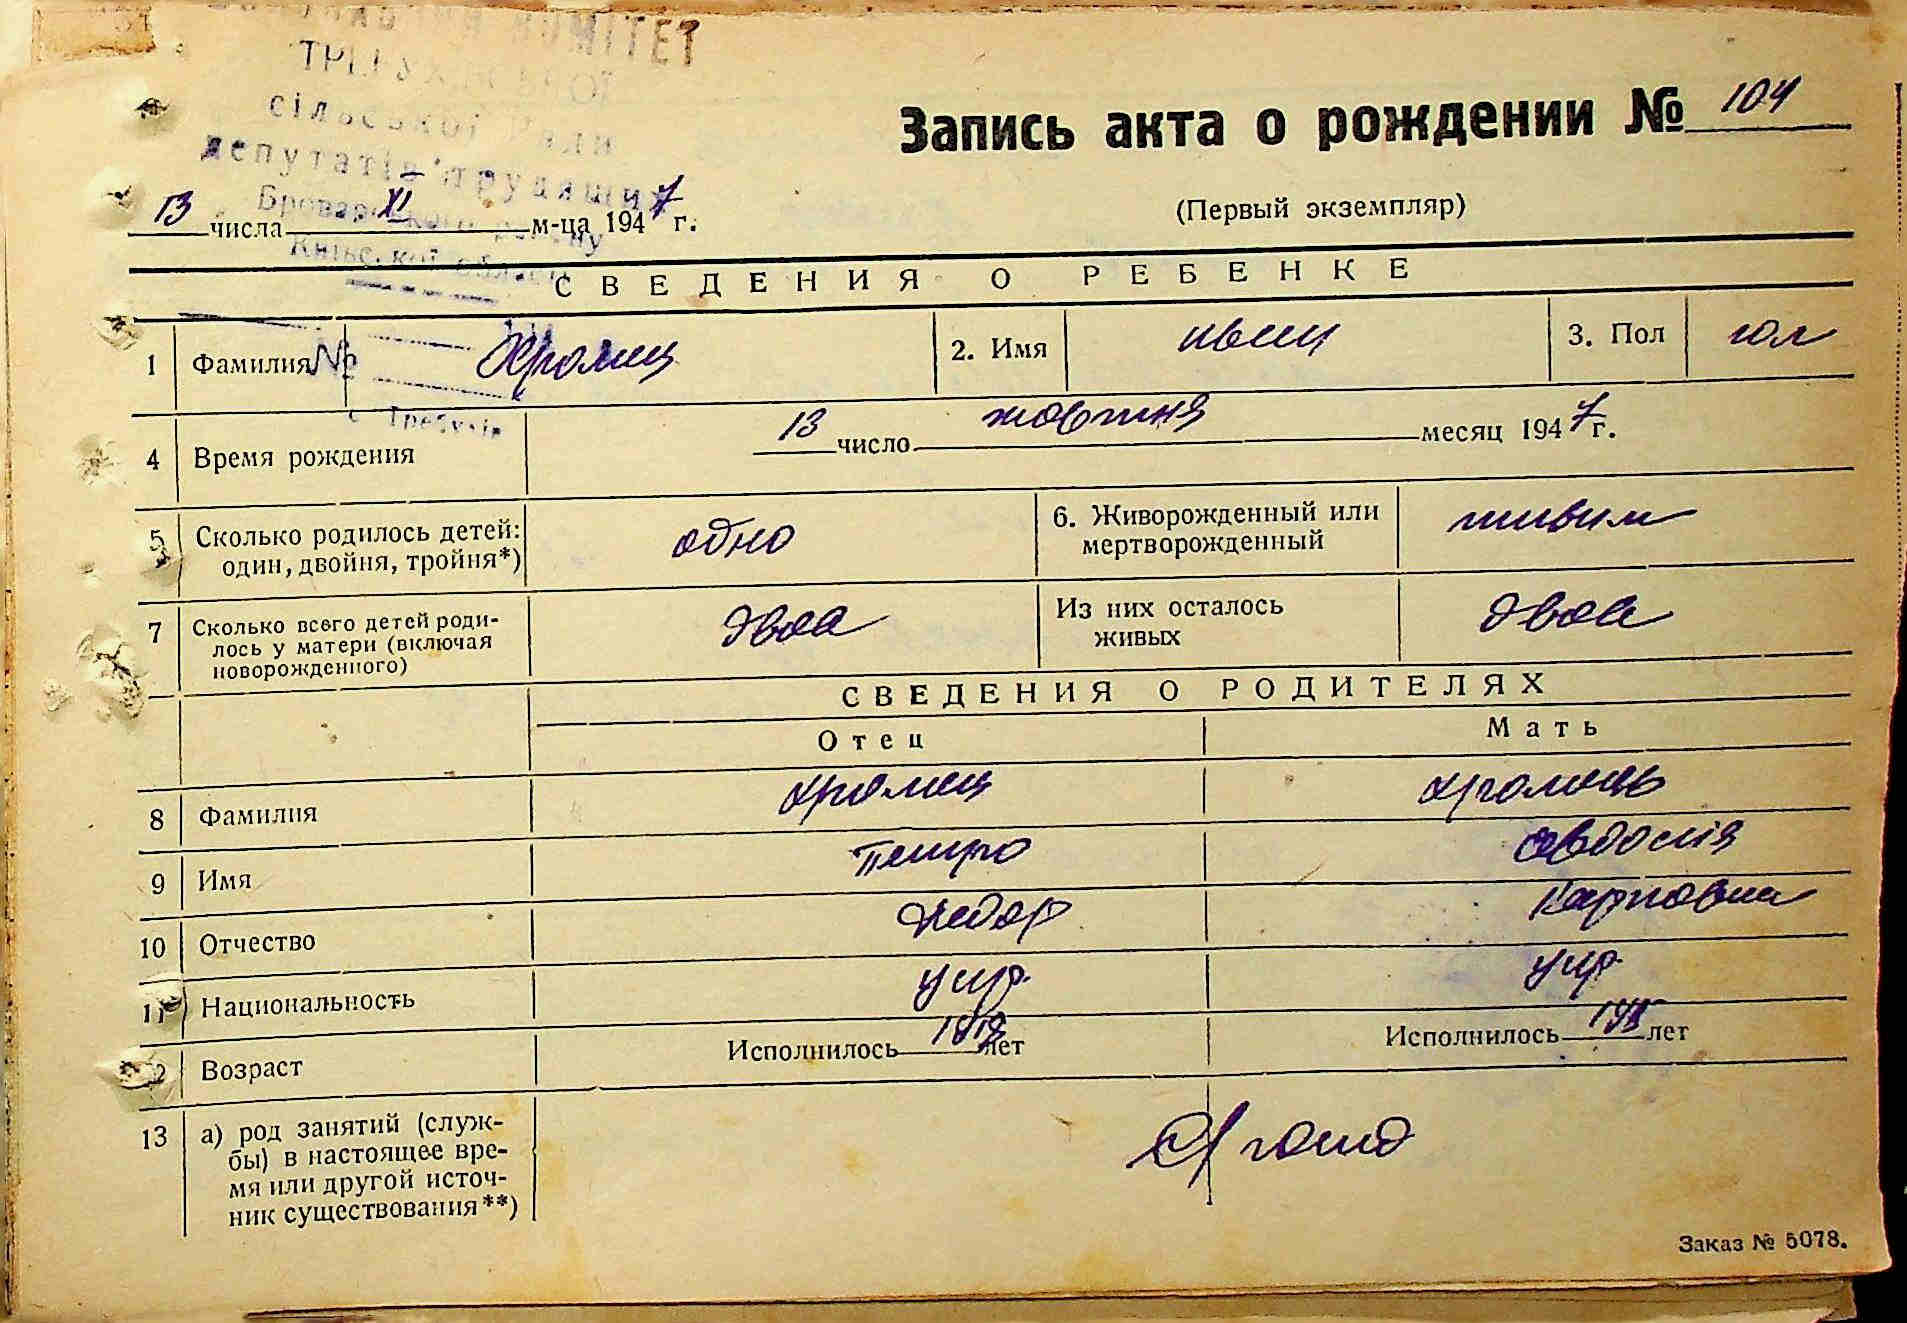 КОМІТЕТ
сільської Ради
депутатів трудящих
Броварського району
Київської області
Запись акта о рождении № 104
(Первый экземпляр)
13 числа XI м-ца 1947 г.
СВЕДЕНИЯ О РЕБЕНКЕ
1 Фамилия № Хромец 2. Имя 3. Пол
с Требухів
4 Время рождения 13 число жовтня месяц 1947 г.
5 Сколько родилось детей: один, двойня, тройня*) одно 6. Живорожденный или мертворожденный живим
7 Сколько всего детей родилось у матери (включая новорожденного) двоє Из них осталось живых двоє
СВЕДЕНИЯ О РОДИТЕЛЯХ
Отец Мать
8 Фамилия Хромец Хромець
9 Имя Петро Євдокія
10 Отчество Федор Карповна
11 Национальность укр. укр.
12 Возраст Исполнилось лет Исполнилось лет
13 а) род занятий (службы) в настоящее время или другой источник существования**)
Заказ № 5078.